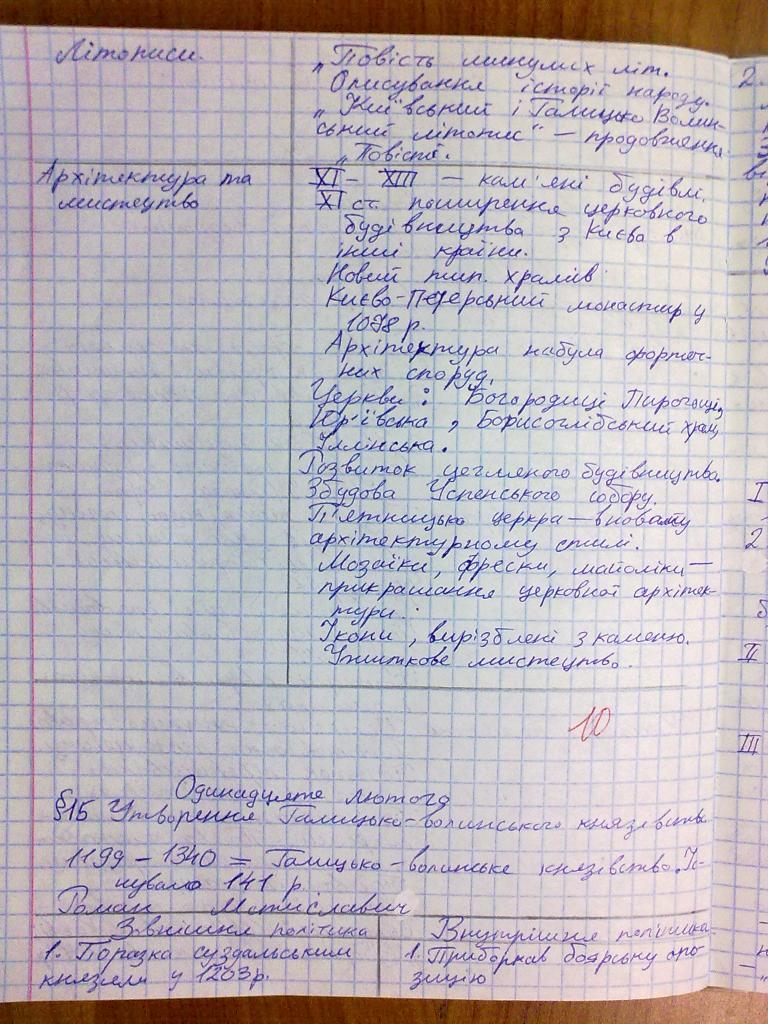 Літописи.
„Повість минулих літ.
Описування історії народу.
„Київський і Галицько Волин-
ський літопис" – продовження
„Повісті.
Архітектура та
мистецтво
XI – XIII – кам'яні будівлі.
XI ст. поширення церковного
будівництва з Києва в
інші країни.
Новий тип. храмів
Києво-Печерський монастир у
1078 р.
Архітектура набула фортеч-
них споруд.
Церкви: Богородиці Пирогощі,
Юр'ївська, Борисоглібський храм,
Іллінська.
Розвиток цегляного будівництва.
Збудова Успенського собору.
П'ятницька церква – в новому
архітектурному стилі.
Мозаїки, фрески, майоліки –
прикрашання церковної архітек-
тури.
Ікони, вирізблені з каменю.
Ужиткове мистецтво.
10
Одинадцяте лютого
§15 Утворення Галицько-волинського князівства
1199 – 1340 = Галицько-волинське князівство. Іс-
нувало 141 р.
Роман Мстиславич
Зовнішня політика
Внутрішня політика
1. Поразка суздальським
князям у 1203р.
1. Приборкав боярську опо-
зицію
2.
I
2
II
III